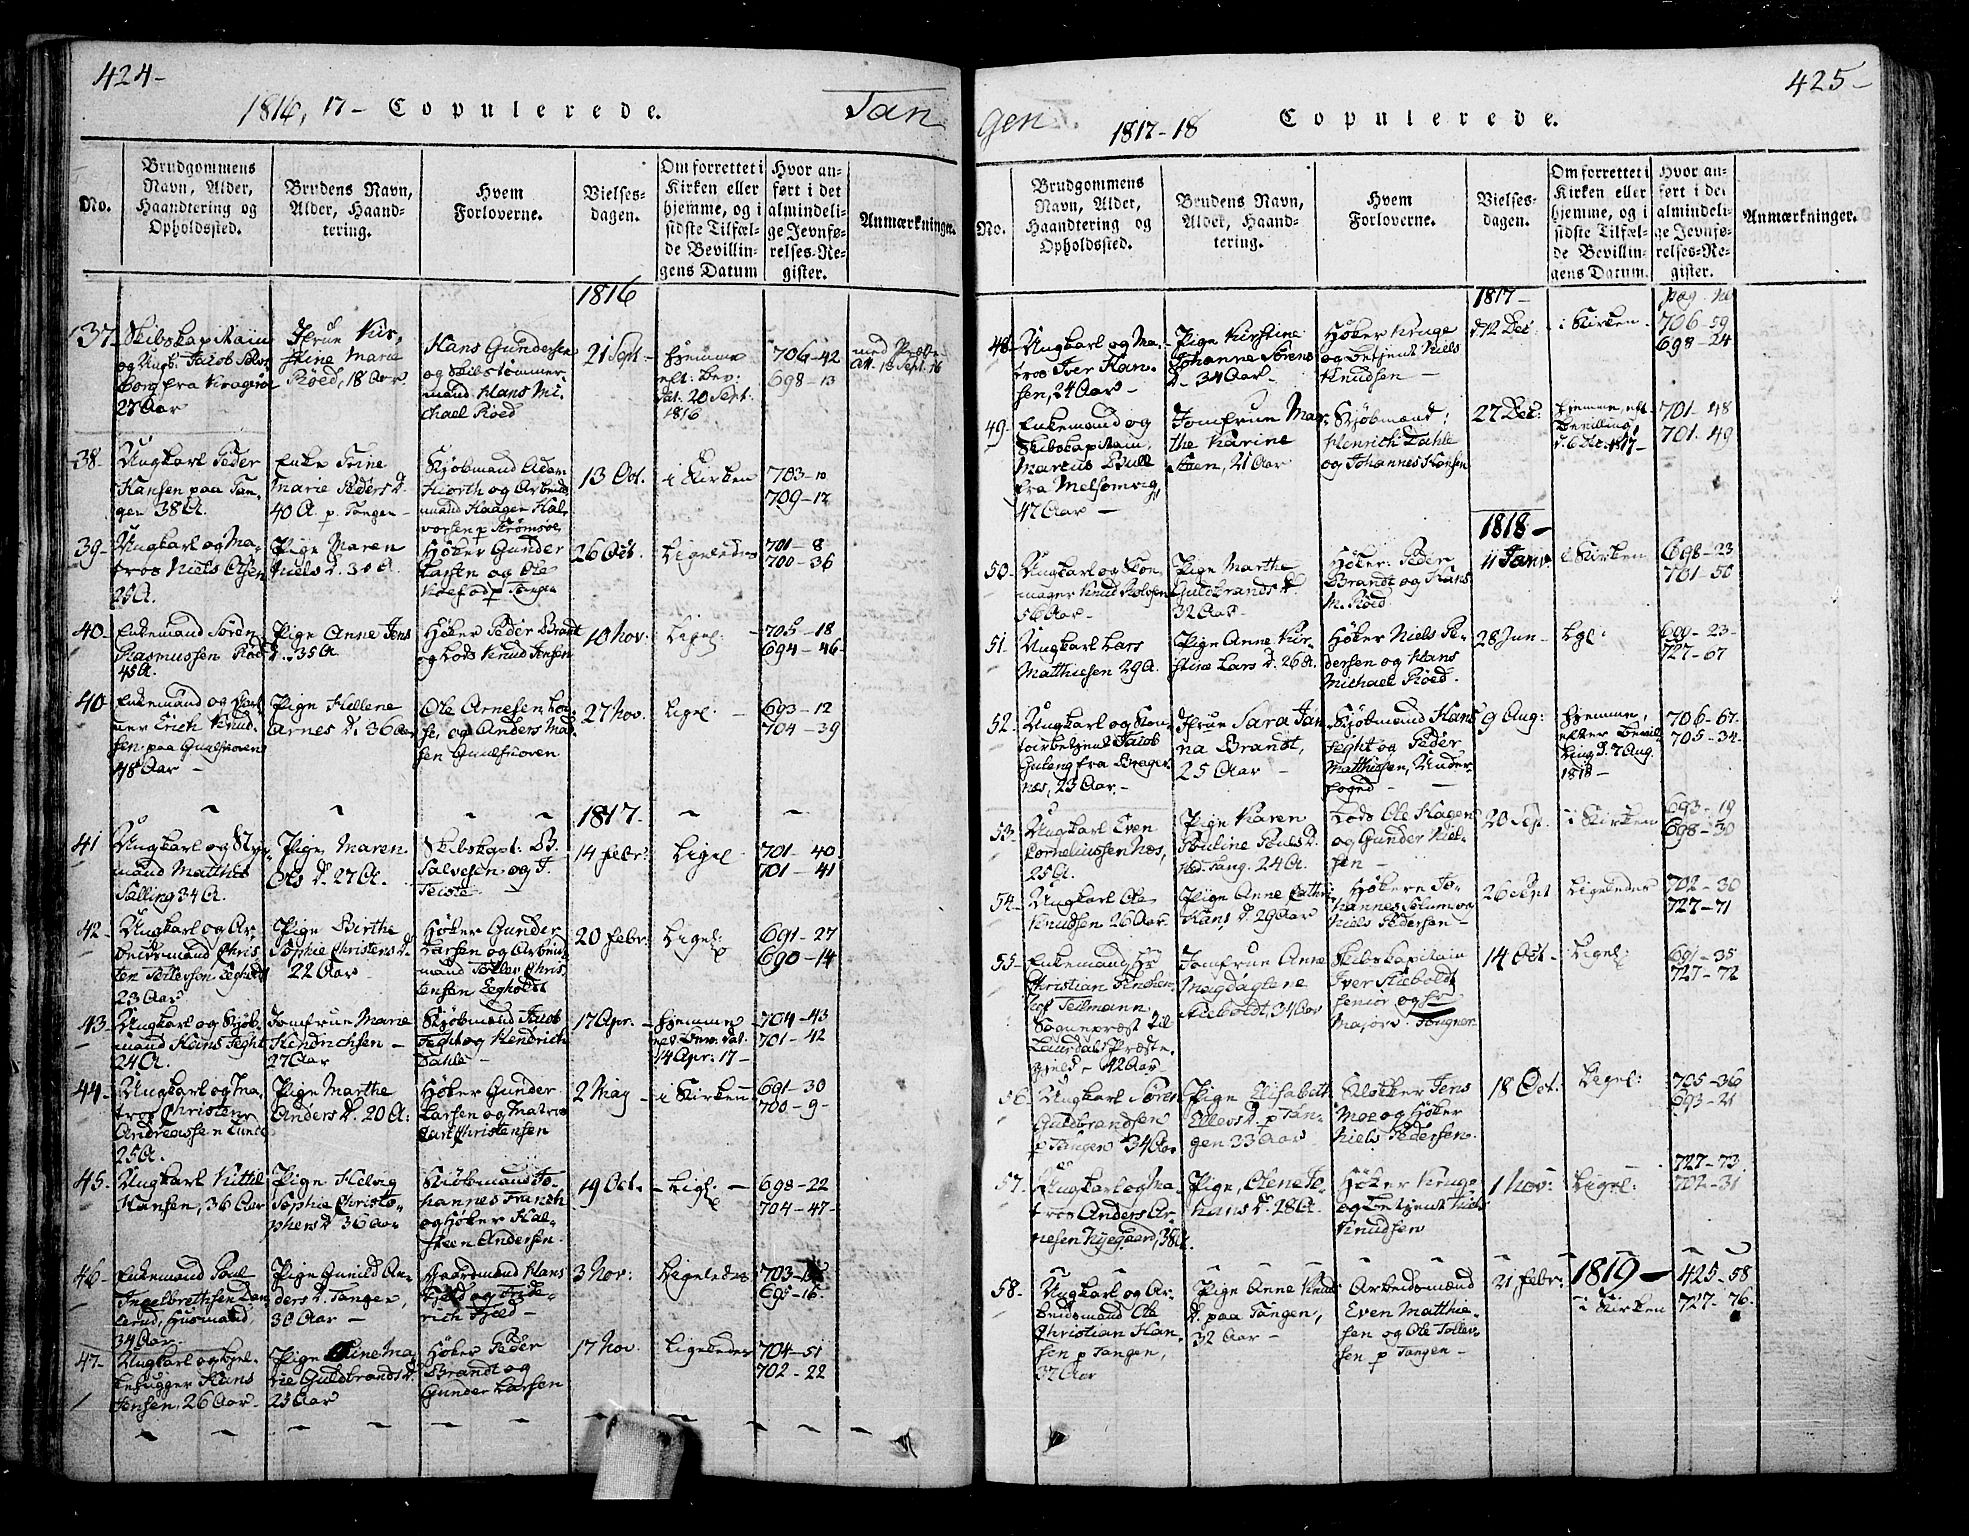 424-
1816, 17 - Copulerede.
Tan
No.
Brudgommens Navn, Alder, Haandtering og Opholdssted.
Brudens Navn, Alder, Haandtering.
Hvem Forloverne.
Vielsesdagen.
Om forrettet i Kirken eller hjemme, og i sidste Tilfælde Bevillingens Datum
Hvor anført i det almindelige Jevnførelses-Register.
Anmærkninger.
1816
37.
Skibskapitain
og Ungk. Jacob
borg fra Kragerøe
27 Aar
Kirstine Marie
Röed, 18 Aar
Hans Gundersen
og Skibstømmer-
mand Hans Mi-
chael Röed
21 Sept -
hjemme
eft: Bev:
dat. 20 Sept.
1816
706-42
698-13
38.
Ungkarl Peder
Hansen paa Tan-
gen 38 A.
Enke Trine
Marie Peders D.
40 A. p Tangen -
Kjøbmand Adam
Hiorth og Arbeids
mand Haagen Hal-
vorsen p Strømsøe
13 Oct.
i Kirken
703-10
709-17
39-
Ungkarl og Ma-
tros Niels Olsen
25 A.
Pige Maren
Niels D. 30 A.
Høker Gunder
Larsen og Ole
p Tangen
26 Oct.
Ligeledes
701-8
700-36
40-
Enkemand Søren
Rasmussen Röed
45 A.
Pige Anne Jens
D. 35 A.
Høker Peder Brandt
og Lods Knud Jensen
10 Nov:
Ligel: -
705-18
694-46-
40
Enkemand og
Erich Knud-
sen paa Gulskoven
48 Aar -
Pige Hellene
Arnes D. 36 Aar
Ole Arnesen
og Anders Mad-
sen Gulskoven
27 Nov.
Ligel: -
693-12
704-39
1817.
41
Ungkarl og Styr-
mand Matthis
Salling 34 A.
Pige Maren
Ols D. 27 A.
Skibskapt: B.
Salvesen og J.
Teiste -
14 Febr:
Ligel
701-40.
701-41
42-
Ungkarl og Ar-
beidsmand Chris-
ten Tollersen Legholdt
23 Aar
Pige Birthe
Sophie Christens D.
22 Aar -
Høker Gunder
Larsen og Arbeids
mand Toller Chris
tensen Legholdt
20 Febr:
Ligel:
691-27
690-14
43-
Ungkarl og Kjøb-
mand Hans Feght
24 A.
Jomfrue Marie
Hendrichsen -
27 Aar
Kjøbmand Jacob
Feght og Hendrich
Dahle -
17 Apr. -
hjemme
eft. Bev. dat.
14 Apr: 17 -
704-43
701-42
44-
Ungkarl og Ma-
tros Christen
Andreassen Lunde
25 A.
Pige Marthe
Anders D. 20 A:
Høker Gunder
Larsen og Matros
Lars Christensen
2 May -
i Kirken
691-30
700-9-
45-
Ungkarl Kittil
Hansen, 36 Aar
Pige Helvig
Sophie Christo-
phers D. 36 Aar-
Kiöbmand Jo-
hannes Franch
og Høker Hal-
steen Andersen.
19 Oct.
- Ligl -
698-22
704-47-
46-
Enkemand Poul
Ingelbrethsen
Husmand,
34 Aar.
Pige Gunild An-
ders D. Tangen,
30 Aar -
Gaardmand Hans
Fjeld og Fride-
rich Fjeld -
3 Nov:
Ligeledes
703-
695-16-
47-
Ungkarl og
Hans
Jensen, 26 Aar-
Pige Trine Ma
rie Guldbrands D.
25 Aar
Høker Peder
Brandt og
Gunder Larsen
17 Nov.
Ligeledes
704-51
702-22
425-
gen
1817-18
Copulerede.
No.
Brudgommens Navn, Alder, Haandtering og Opholdssted.
Brudens Navn, Alder, Haandtering.
Hvem Forloverne.
Vielsesdagen.
Om forrettet i Kirken eller hjemme, og i sidste Tilfælde Bevillingens Datum.
Hvor anført i det almindelige Jevnførelses-Register.
Anmærkninger.
1817-
pag. No
48-
Ungkarl og Ma-
tros Iver Han-
sen, 24 Aar -
Pige Kirstine
Johanne Sørens
D. - 34 Aar -
Høker Kruge
og Betjent Niels
Knudsen -
d. 12 Dec
i Kirken -
706-59
698-24
49-
Enkemand og
Skibskapitain
Marcus Bull
fra Melsomvig
47 Aar -
Jomfrue Mar-
the Karine
Steen, 21 Aar
Kjøbmænd:
Henrich Dahle
og Johannes Hansen
27 Dec.
hjemme, eft.
Bevilling
701-48
701.49
1818-
50-
Ungkarl og Sko-
mager Knud
56 Aar -
Pige Marthe
Guldbrands D.
32 Aar -
Høker: Peder
Brandt og Hans
M. Röed
11 Janv
i Kirken
698-23
701-50
51.
Ungkarl Lars
Matthiesen 29 A.
Pige Anne Kir-
stine Lars D. 26 A.
Høker Niels Pe-
dersen og Hans
Michael Röed.
28 Jun -
Lgl:
699-23-
727-67
52.
Ungkarl og Kon-
toirbetjent Jacob
fra Brager-
nes, 25 Aar. -
Sara Jan-
na Brandt,
25 Aar -
Kjøbmand Hans
Feght og Peder
Matthiesen, Under-
foged -
9 Aug:
hjemme,
efter Bevil-
ling d. 7 Aug.
1818 -
706-67.
705-34-
53-
Ungkarl Even
Corneliussen Næs,
25 A.
Pige Karen
Pouline Pouls D.
ved Tang. 24 A.
Lods Ole Hagen
og Gunder Niel-
sen -
20 Sept.
- i Kirken
693-19
698-30
54-
Ungkarl Ole
Knudsen 26 Aar
Pige Anne Cathri
Hans D. 29 Aar
Høkere Jo-
hannes Solum og
Niels Pedersen -
26 Sept
Ligeledes
702-30
727-71
55-
Enkemand Hr
Christian
Tellmann
Sognepræst til
Laurdals Præste-
gjeld - 42 Aar -
Jomfrue Anne
Magdaglene
34 Aar
Skibskapitain
Iver
senior og Hr
Major Tongner
14 Oct.
Ligel:
691-35
727-72
56-
Ungkarl Søren
Guldbrandsen
p Tangen 34 Aar
Pige Elisabeth
Ellevs D. p Tan-
gen 33 Aar
Klokker Jens
Moe og Høker
Niels Pedersen.
18 Oct.
Ligel:
705-36
693-21
57-
Ungkarl og Ma-
tros Anders Ar-
nesen Nyegaard, 38 A.
Pige, Olene Jo-
hans D. 28 A.
Høker Kruge
og Betjent Niels
Knudsen
1 Nov:
Ligel:
727-73.
702-31
1819-
58-
Ungkarl og Ar-
beidsmand Ole
Christian Han-
sen p Tangen,
37 Aar
Pige Anne Knuds
D. paa Tangen,
32 Aar -
Arbeidsmænd
Even Matthie-
sen og Ole Toller-
sen p Tangen -
21 Febr:
- i Kirken
425-58
727-76.